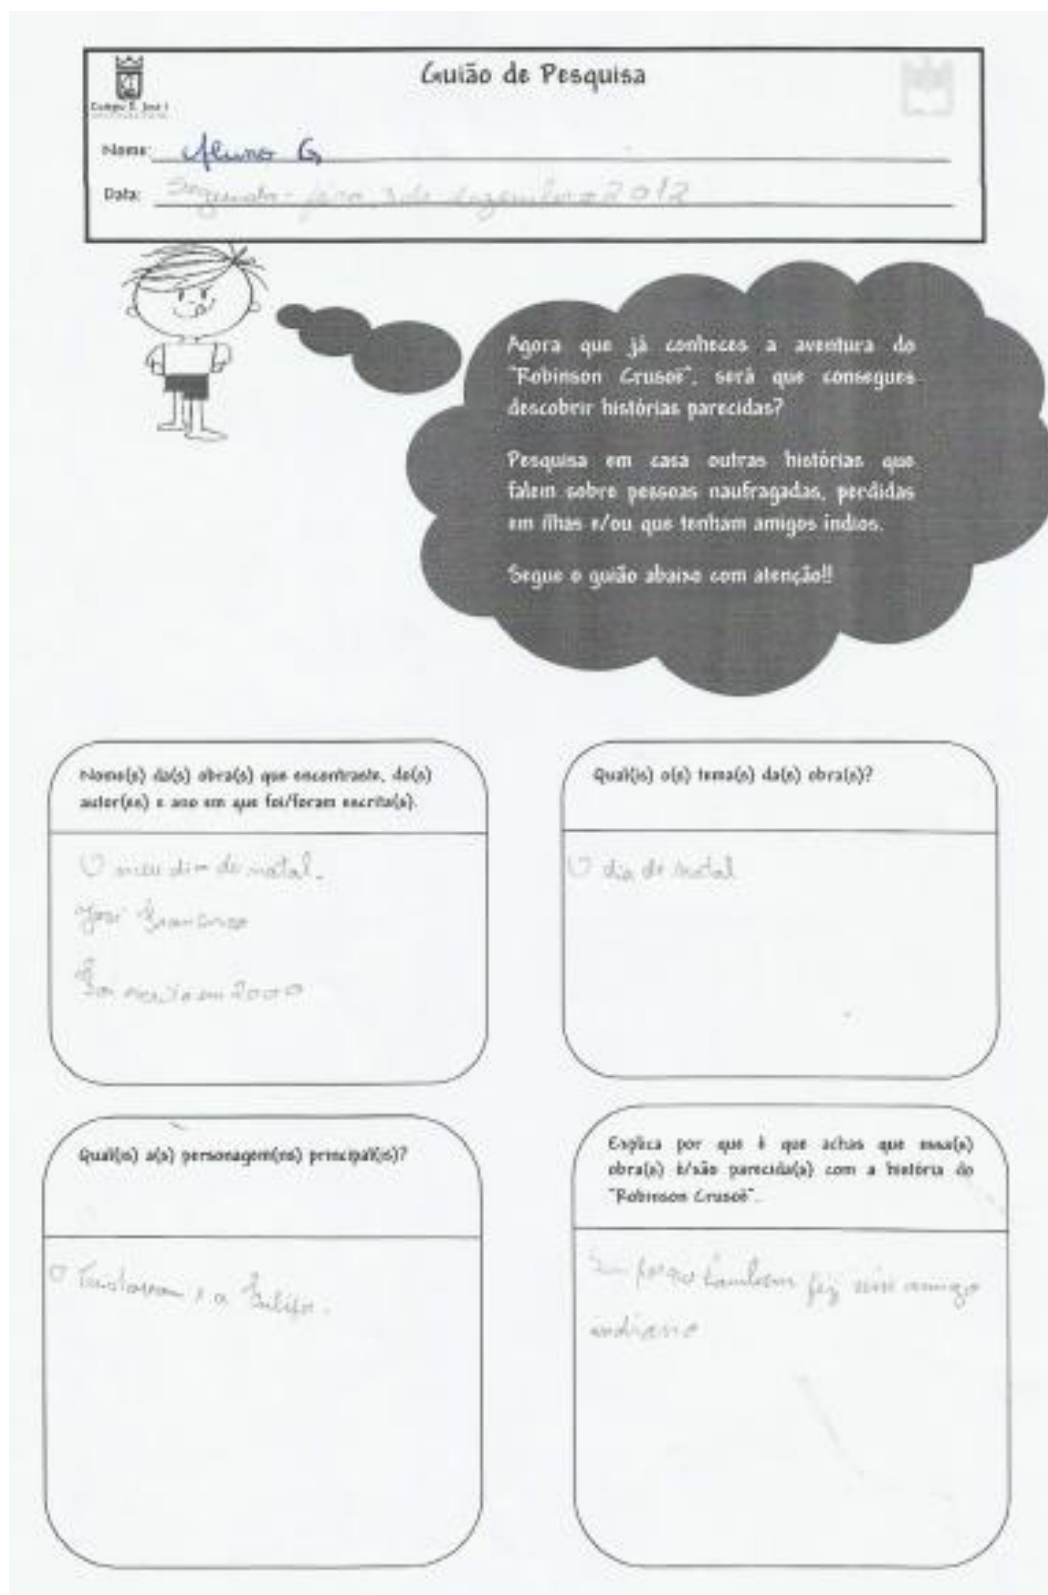 Guião de Pesquisa
Colégio D. José I
Nome: Aluno G
Data: Segunda-feira, 3 de dezembro 2012
Agora que já conheces a aventura do
"Robinson Crusoé", será que consegues
descobrir histórias parecidas?
Pesquisa em casa outras histórias que
falem sobre pessoas naufragadas, perdidas
em ilhas e/ou que tenham amigos índios.
Segue o guião abaixo com atenção!!
Nome(s) da(s) obra(s) que encontraste, do(s)
autor(es) e ano em que foi/foram escrita(s).
O meu dia de natal.
José Francisco
Foi escrito em 2000
Qual(is) o(s) tema(s) da(s) obra(s)?
O dia de natal
Qual(is) a(s) personagem(ns) principal(is)?
O e a
Explica por que é que achas que essa(s)
obra(s) é/são parecida(s) com a história do
"Robinson Crusoé".
também fez um amigo
indiano